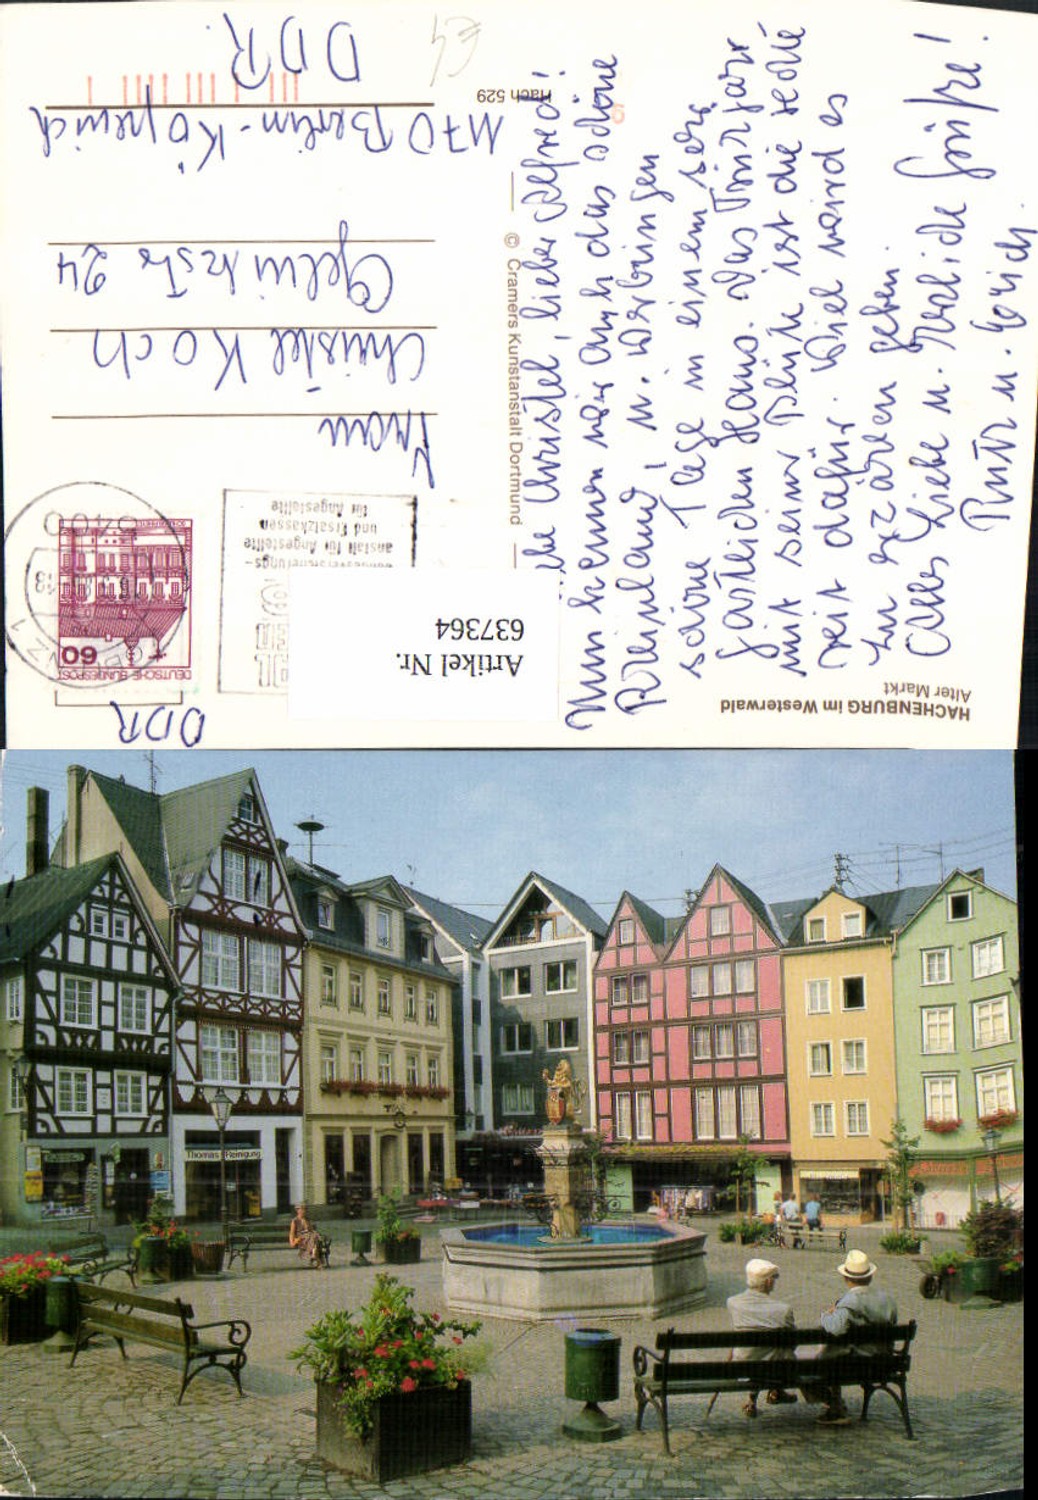 HACHENBURG im Westerwald
Alter Markt
Liebe Christel, lieber Alfred!
Nun kennen wir auch das schöne
Rheinland, u. verbringen
schöne Tage in einem sehr
gastlichen Haus. Das Frühjahr
mit seiner Blüte ist die rechte
Zeit dafür. Viel wird es
zu erzälen geben.
Alles Liebe u. Herzliche Grüße!
Ruth u. Erich.
DDR
DEUTSCHE BUNDESPOST
60
5400
KOBLENZ 1
anstalt für Angestellte
und Ersatzkassen
für Angestellte
Artikel Nr.
637364
Frau
Christel Koch
Gelnitzstr 24
1170 Berlin-Köpenick
DDR.
Hach 529
© Cramers Kunstanstalt Dortmund
Thomas Reinigung